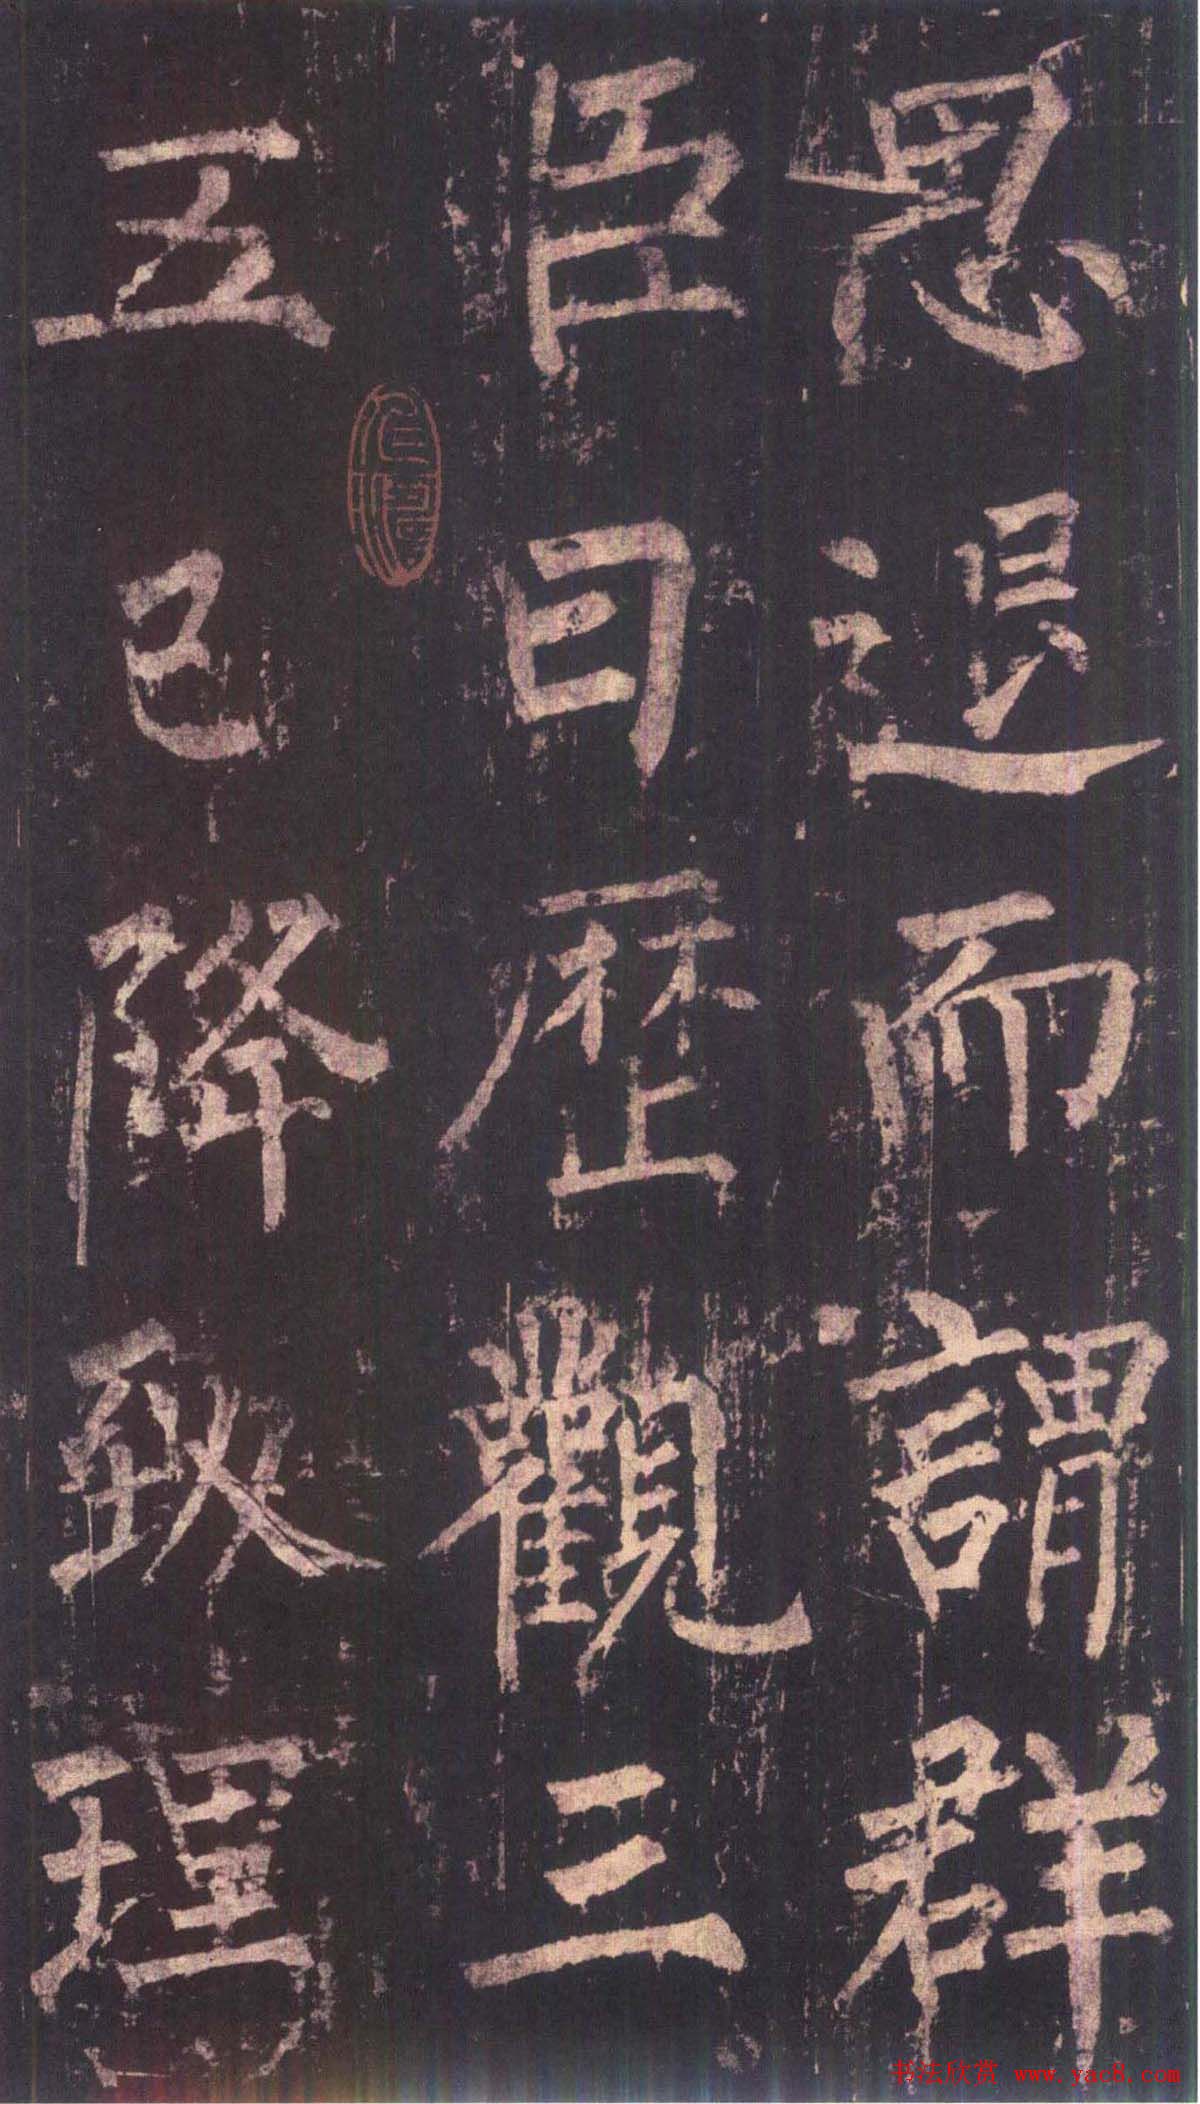 思退而謂群
臣曰歴觀三
五已降致理
书法欣赏 www.yac8.com